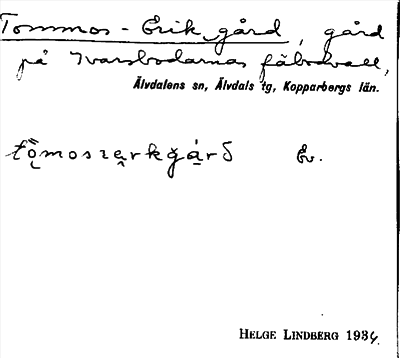 Tommos-Erik gård, gård
på Ivarsbodarnas fäbodvall,
Älvdalens sn, Älvdals tg, Kopparbergs län.
Ev.
HELGE LINDBERG 1934.